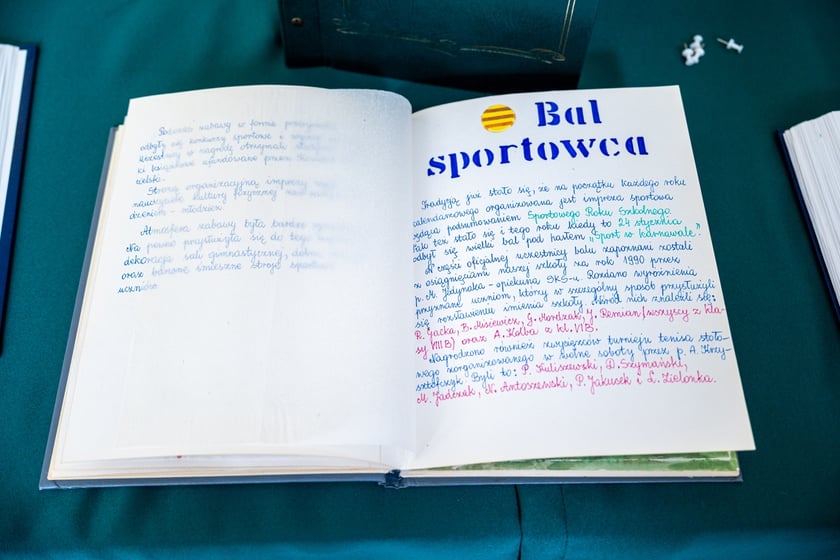 Podczas zabawy w formie
odbyły się konkursy sportowe i
w nagrodę otrzymali
ki książkowe ufundowane przez
Stroną organizacyjną imprezy
nauczyciele kultury fizycznej
dzeniem - młodzież.
Atmosfera zabawy była bardzo
Na pewno przysłużyła się do tego
dekoracja sali gimnastycznej,
oraz barwne śmieszne stroje
uczniów
Bal
sportowca
Tradycją już stało się, że na początku każdego roku
kalendarzowego organizowana jest impreza sportowa
będąca podsumowaniem Sportowego Roku Szkolnego.
Tak też stało się i tego roku kiedy to 24 stycznia
odbył się wielki bal pod hasłem „Sport w karnawale."
W części oficjalnej uczestnicy balu zapoznani zostali
z osiągnięciami naszej szkoły na rok 1990 przez
p. M. Gdynaka - opiekuna SKS-u. Rozdano wyróżnienia
przyznane uczniom, który w szczególny sposób przysłużyli
się rozsławieniu imienia szkoły. Wśród nich znaleźli się:
R. Gacka, B. Misiewicz, G. Mordzak, J. Remian (wszyscy z kla-
sy VIII B) oraz A. Kolba z kl. VI B.
Nagrodzono również zwycięzców turnieju tenisa stoło-
wego zorganizowanego w wolne soboty przez p. A. Krzy-
sztofczyk. Byli to: P. Kuliszewski, D. Szymański,
M. Jadczak, N. Antoszewski, P. Jakusek i Ł. Zielonka.